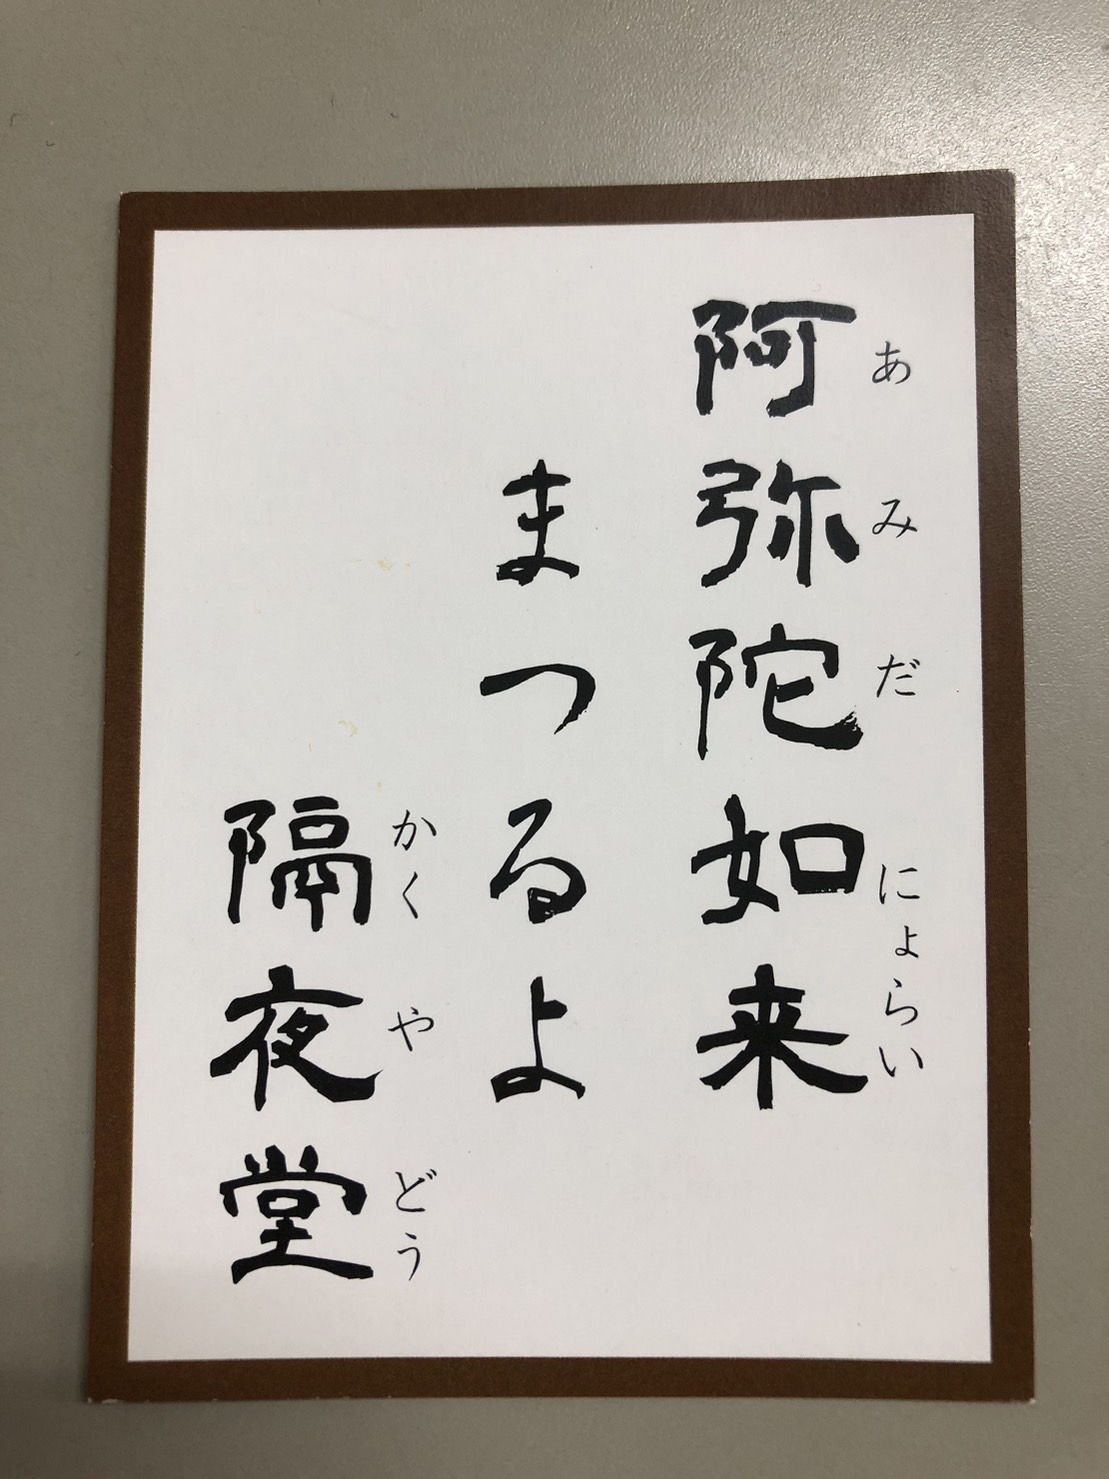 阿弥陀如来
あみだにょらい
まつるよ
隔夜堂
かくやどう